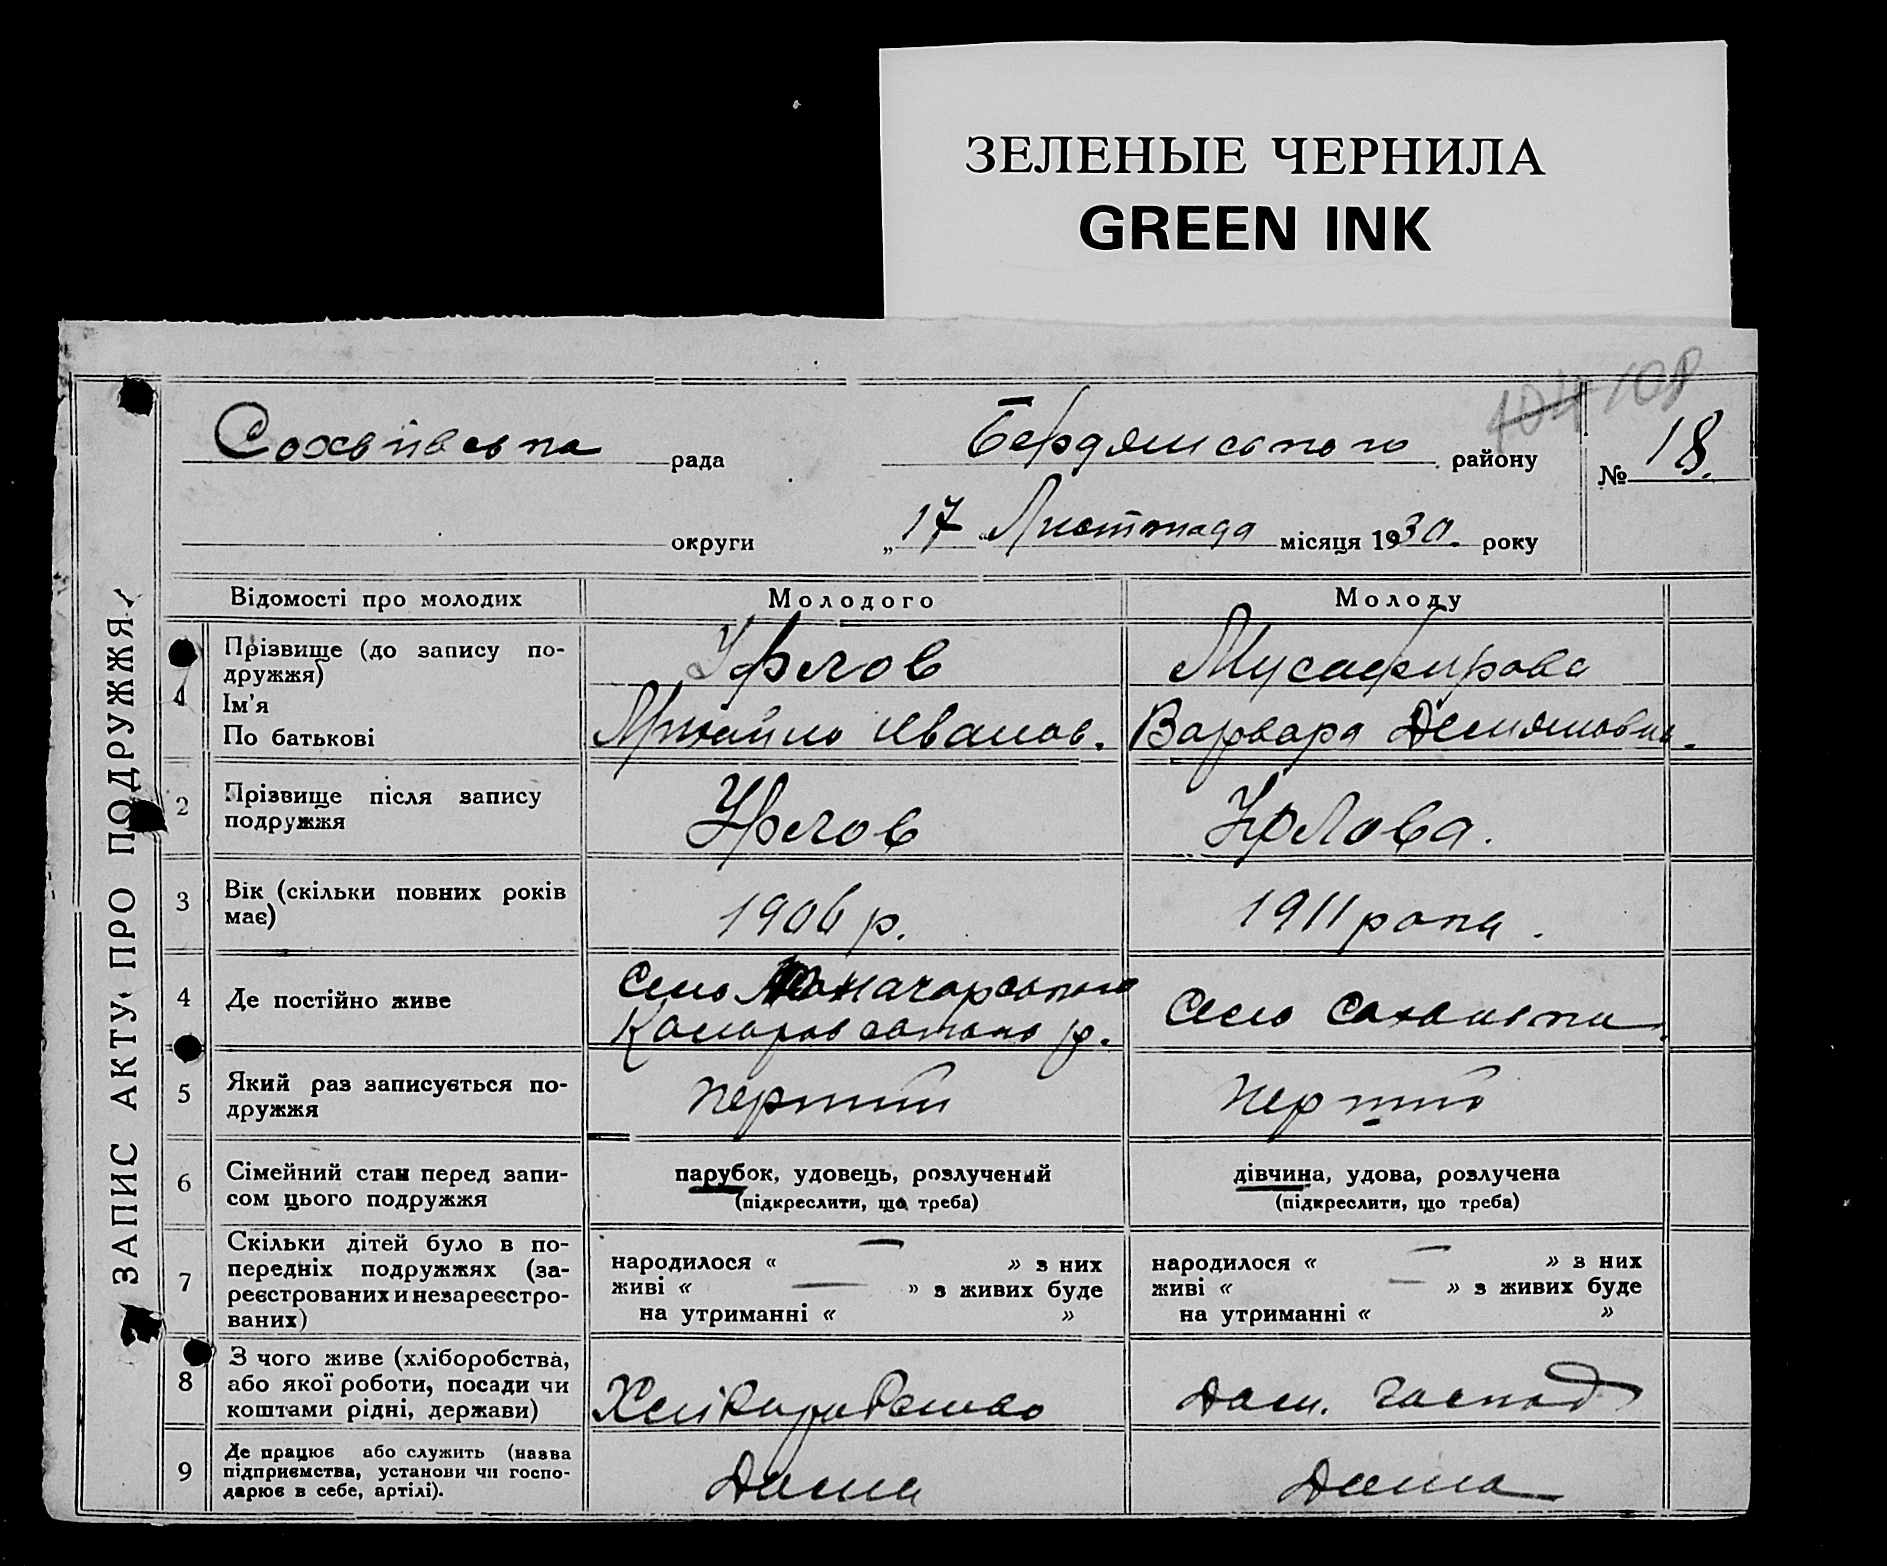 ЗЕЛЕНЫЕ ЧЕРНИЛА
GREEN INK
404 108
рада Бердянського району № 18.
округи „17" Листопада місяця 1930. року
ЗАПИС АКТУ ПРО ПОДРУЖЖЯ
Відомості про молодих Молодого Молоду
1 Прізвище (до запису по-
дружжя) Мусафирова
Ім'я
По батькові Михайло Иванов. Варвара Демяновна.
2 Прізвище після запису
подружжя
3 Вік (скільки повних років
має) 1906 р. 1911 рока.
4 Де постійно живе Село
Село
5 Який раз записується по-
дружжя перший перший
6 Сімейний стан перед запи-
сом цього подружжя
парубок, удовець, розлучений
(підкреслити, що треба)
дівчина, удова, розлучена
(підкреслити, що треба)
7 Скільки дітей було в по-
передніх подружжях (за-
реєстрованих и незареєстро-
ваних)
народилося « — » з них
живі « — » з живих буде
на утриманні « »
народилося « — » з них
живі « — » з живих буде
на утриманні « »
8 З чого живе (хліборобства,
або якої роботи, посади чи
коштами рідні, держави) Дом. господ
9 Де працює або служить (назва
підприємства, установи чи госпо-
дарює в себе, артілі). Дома Дома